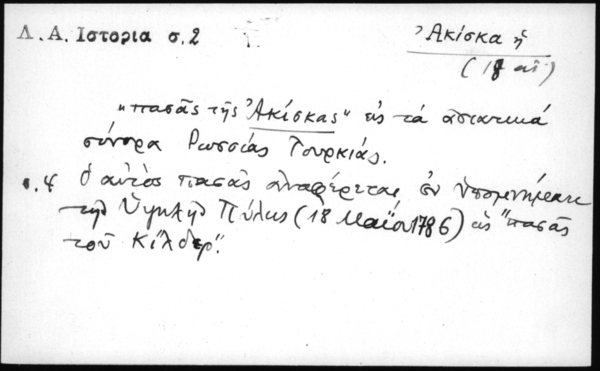 Λ. Α. Ιστορια σ. 2
Ἀκίσκα ἡ
(18 αἰ)
"πασᾶς τῆς Ἀκίσκας" εἰς τά ἀσιατικά
σύνορα Ρωσσίας Τουρκιάς.
σ. 4 ὁ αὐτὸς πασᾶς ἀναφέρεται ἐν ὑπομνήματι
τῆς Ὑψηλῆς Πύλης (18 Μαΐου 1786) ὡς "πασᾶς
τοῦ Κίλδερ".